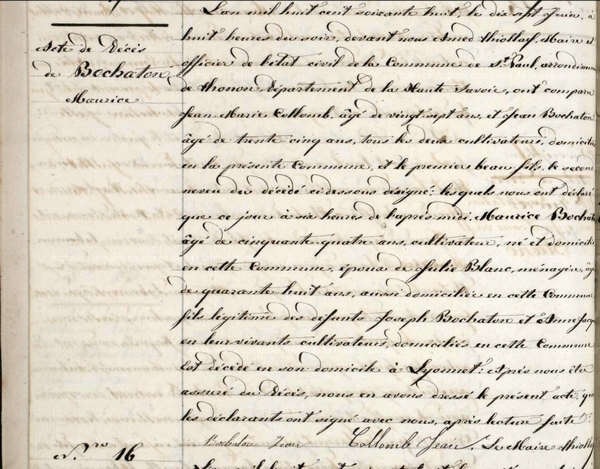 Acte de Décès
de Bochaton
Maurice
L'an mil huit cent soixante huit, le dix sept Juin, à
huit heures du soir, devant nous Amed Thiollay, Maire et
officier de l'état civil de la Commune de St Paul, arrondissem
de Thonon, département de la Haute Savoie, ont comparu
Jean Marie Collomb, âgé de vingt sept ans, et Jean Bochaton
âgé de trente cinq ans, tous les deux cultivateurs, domiciliés
en la présente Commune, et le premier beau fils, le second
neveu du décédé ci dessous désigné; lesquels nous ont déclaré
que ce jour à six heures de l'après midi, Maurice Bochat
âgé de cinquante quatre ans, cultivateur, né et domicilié
en cette Commune, époux de Julie Blanc, ménagère, âg
de quarante huit ans, aussi domiciliée en cette Commune
fils légitime des défunts Joseph Bochaton et
en leur vivants cultivateurs, domiciliés en cette Commune
Est décédé en son domicile à Lyonnet; Et après nous être
assuré du Décès, nous en avons dressé le présent acte, que
les déclarants ont signé avec nous, après lecture faite
Bochaton Jean Collomb Jean. Le Maire Thiollay
N.ro 16